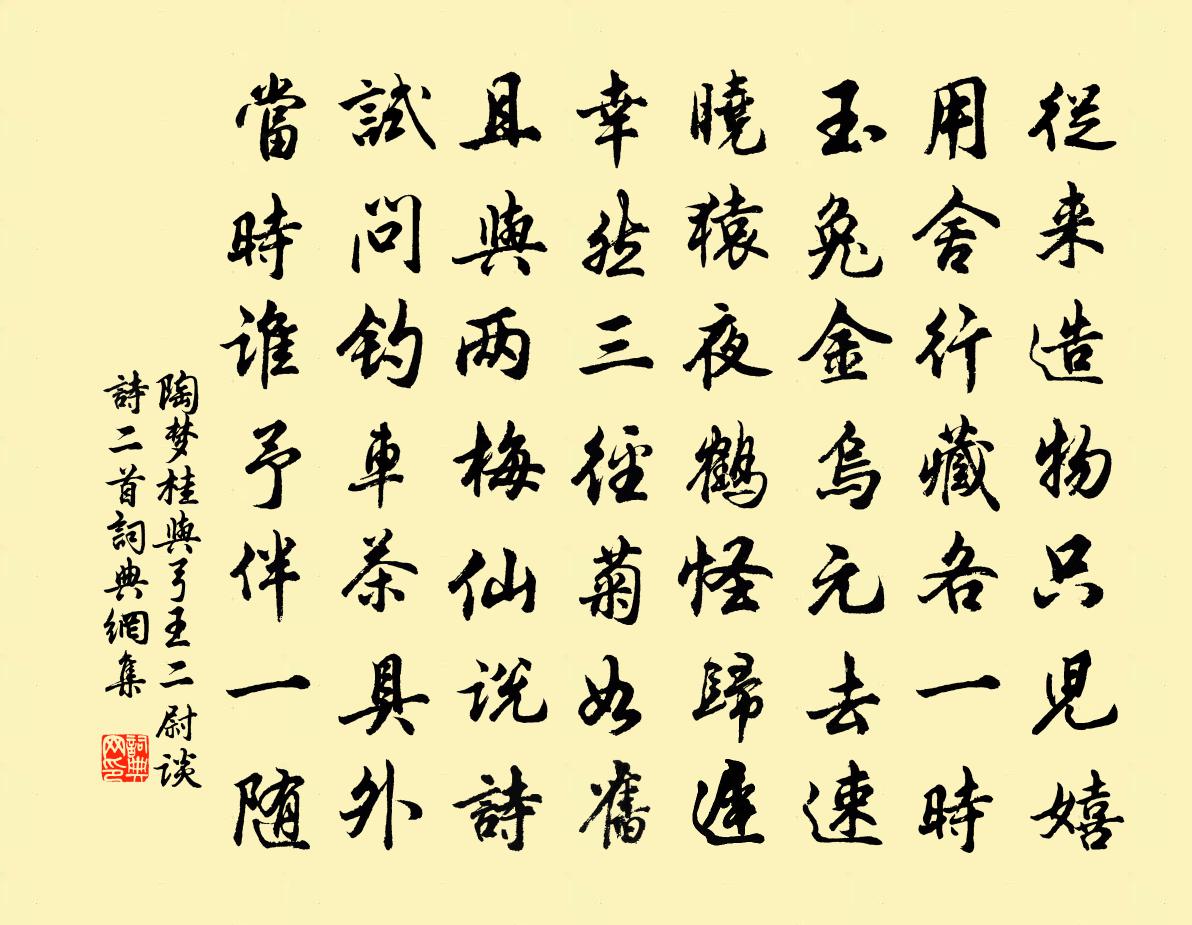 從来造物只児嬉
用舍行藏各一時
玉兔金烏元去速
曉猿夜鶴怪歸遲
幸然三徑菊如舊
且與两梅仙説詩
試問釣車茶具外
當時谁予伴一随
陶梦桂與弓王二尉谈
詩二首詞典網集
詞典网印